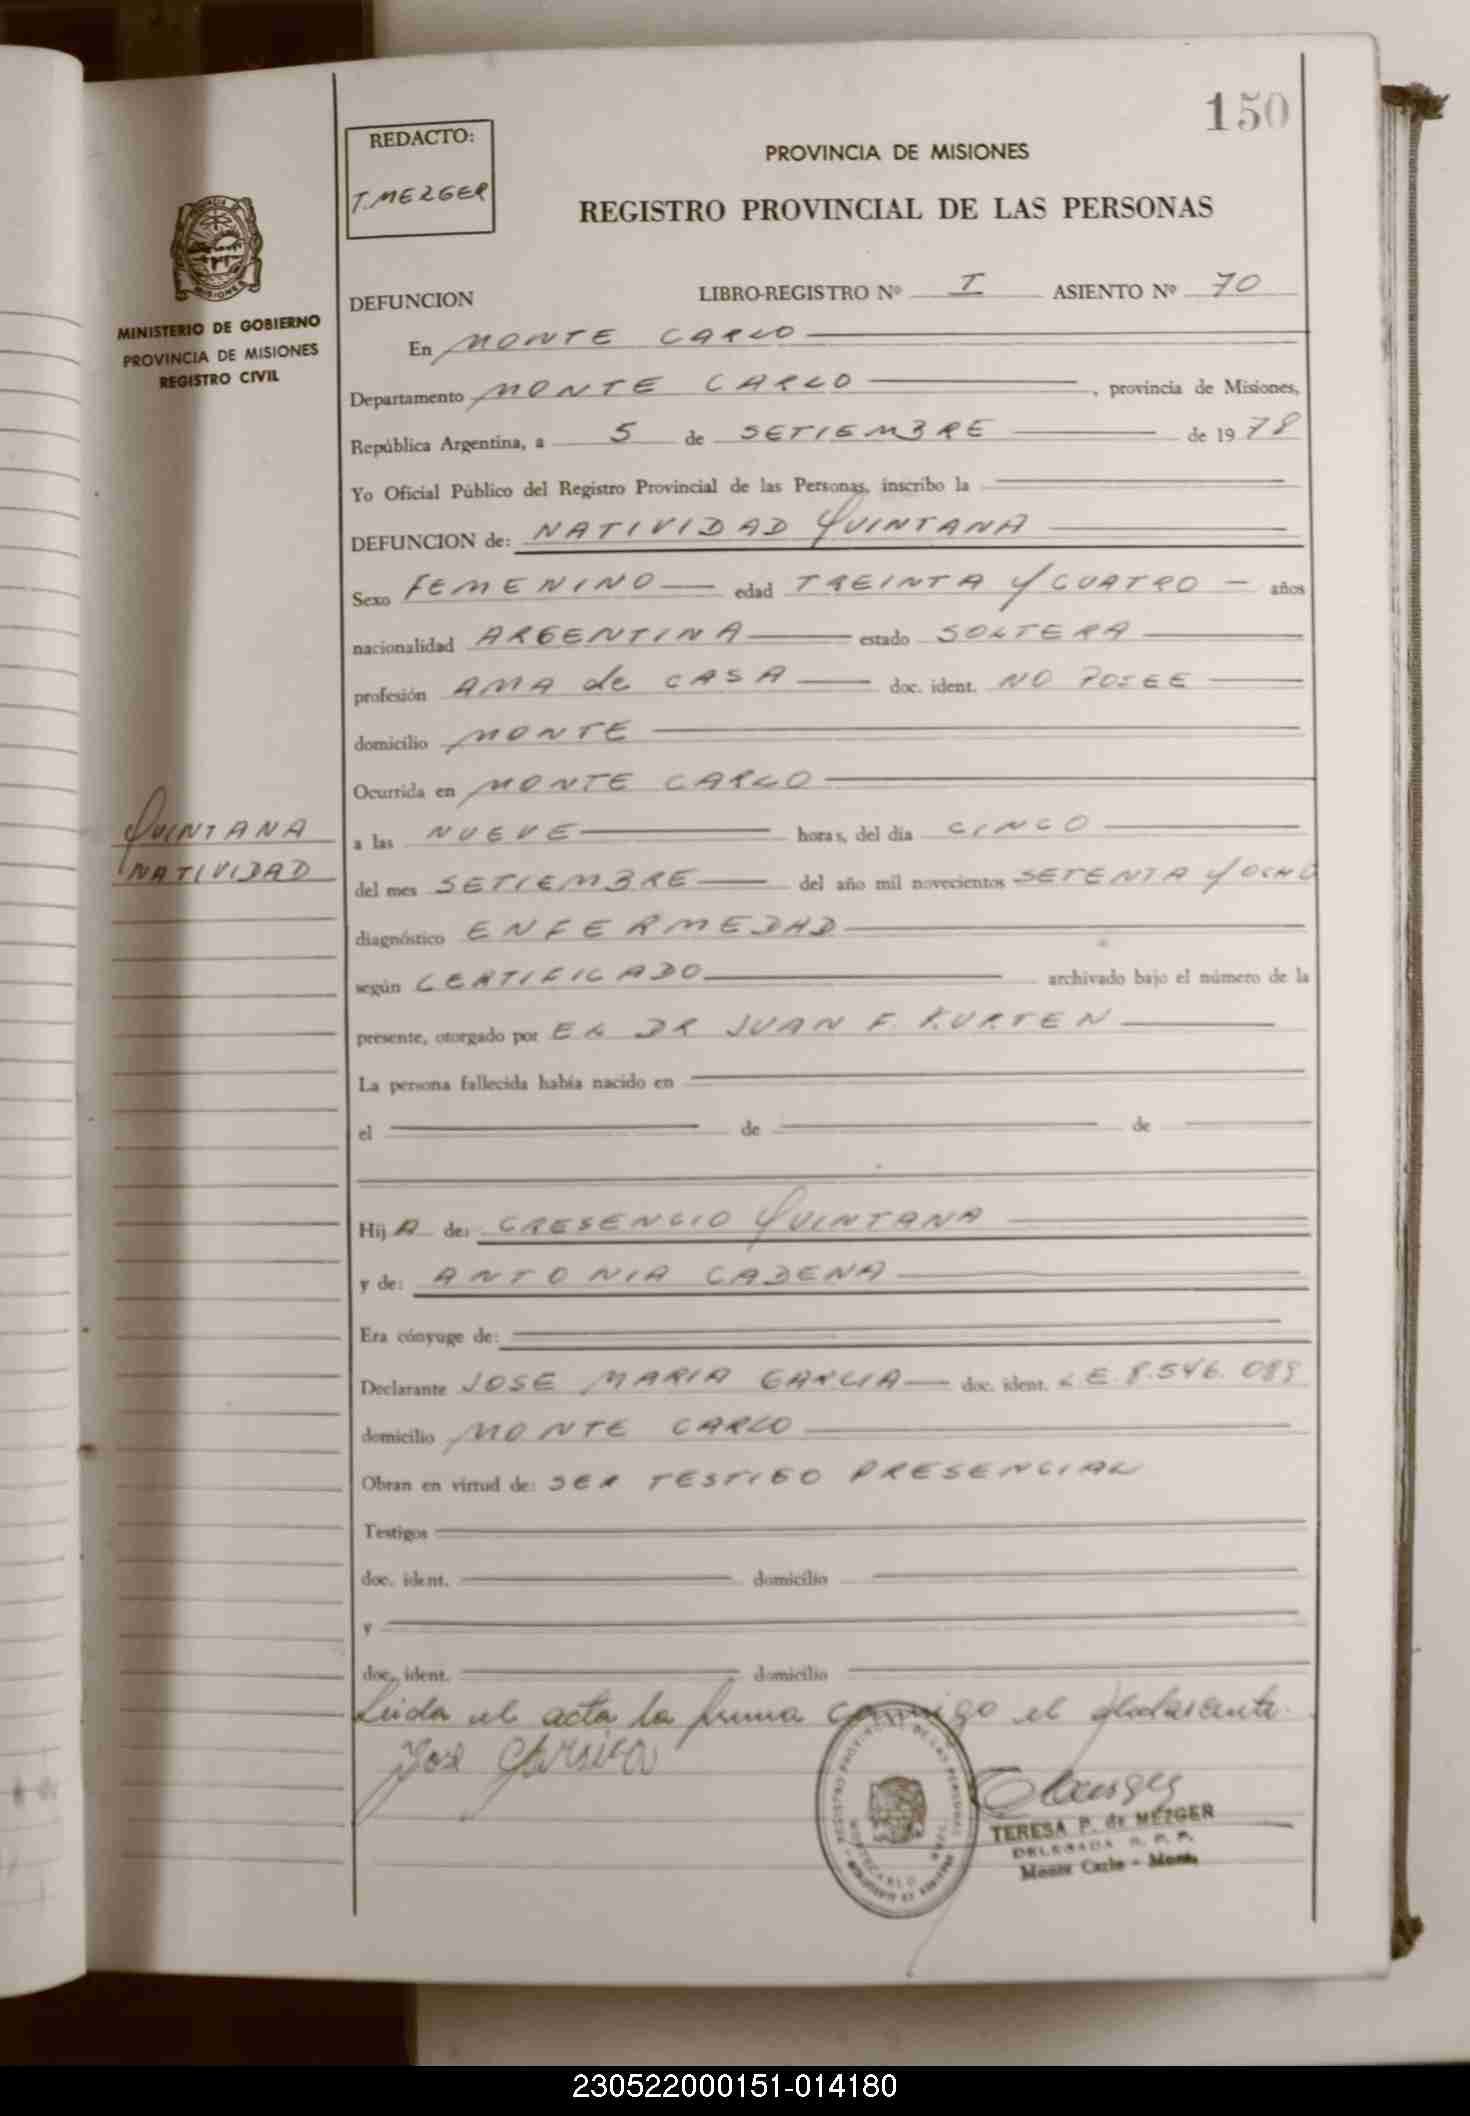 150
REDACTO:
T. MEZGER
PROVINCIA DE MISIONES
REGISTRO PROVINCIAL DE LAS PERSONAS
MINISTERIO DE GOBIERNO
PROVINCIA DE MISIONES
REGISTRO CIVIL
DEFUNCION LIBRO-REGISTRO Nº I ASIENTO Nº 70
En MONTE CARLO
Departamento MONTE CARLO, provincia de Misiones,
República Argentina, a 5 de SETIEMBRE de 1978
Yo Oficial Público del Registro Provincial de las Personas, inscribo la
DEFUNCION de: NATIVIDAD QUINTANA
Sexo FEMENINO edad TREINTA Y CUATRO años
nacionalidad ARGENTINA estado SOLTERA
profesión AMA de CASA doc. ident. NO POSEE
domicilio MONTE
Ocurrida en MONTE CARLO
QUINTANA
NATIVIDAD
a las NUEVE horas, del día CINCO
del mes SETIEMBRE del año mil novecientos SETENTA Y OCHO
diagnóstico ENFERMEDAD
según CERTIFICADO archivado bajo el número de la
presente, otorgado por EL DR JUAN F. KURTEN
La persona fallecida había nacido en
el de de
Hij A de: CRESENCIO QUINTANA
y de: ANTONIA CADENA
Era cónyuge de:
Declarante JOSE MARIA GARCIA doc. ident. L E 8.546.089
domicilio MONTE CARLO
Obran en virtud de: SER TESTIGO PRESENCIAL
Testigos
doc. ident. domicilio
y
doc. ident. domicilio
Leida el acta la firma conmigo el declarante.
José
TERESA P. de MEZGER
DELEGADA R. P. P.
Monte Carlo - Mnes.
230522000151-014180